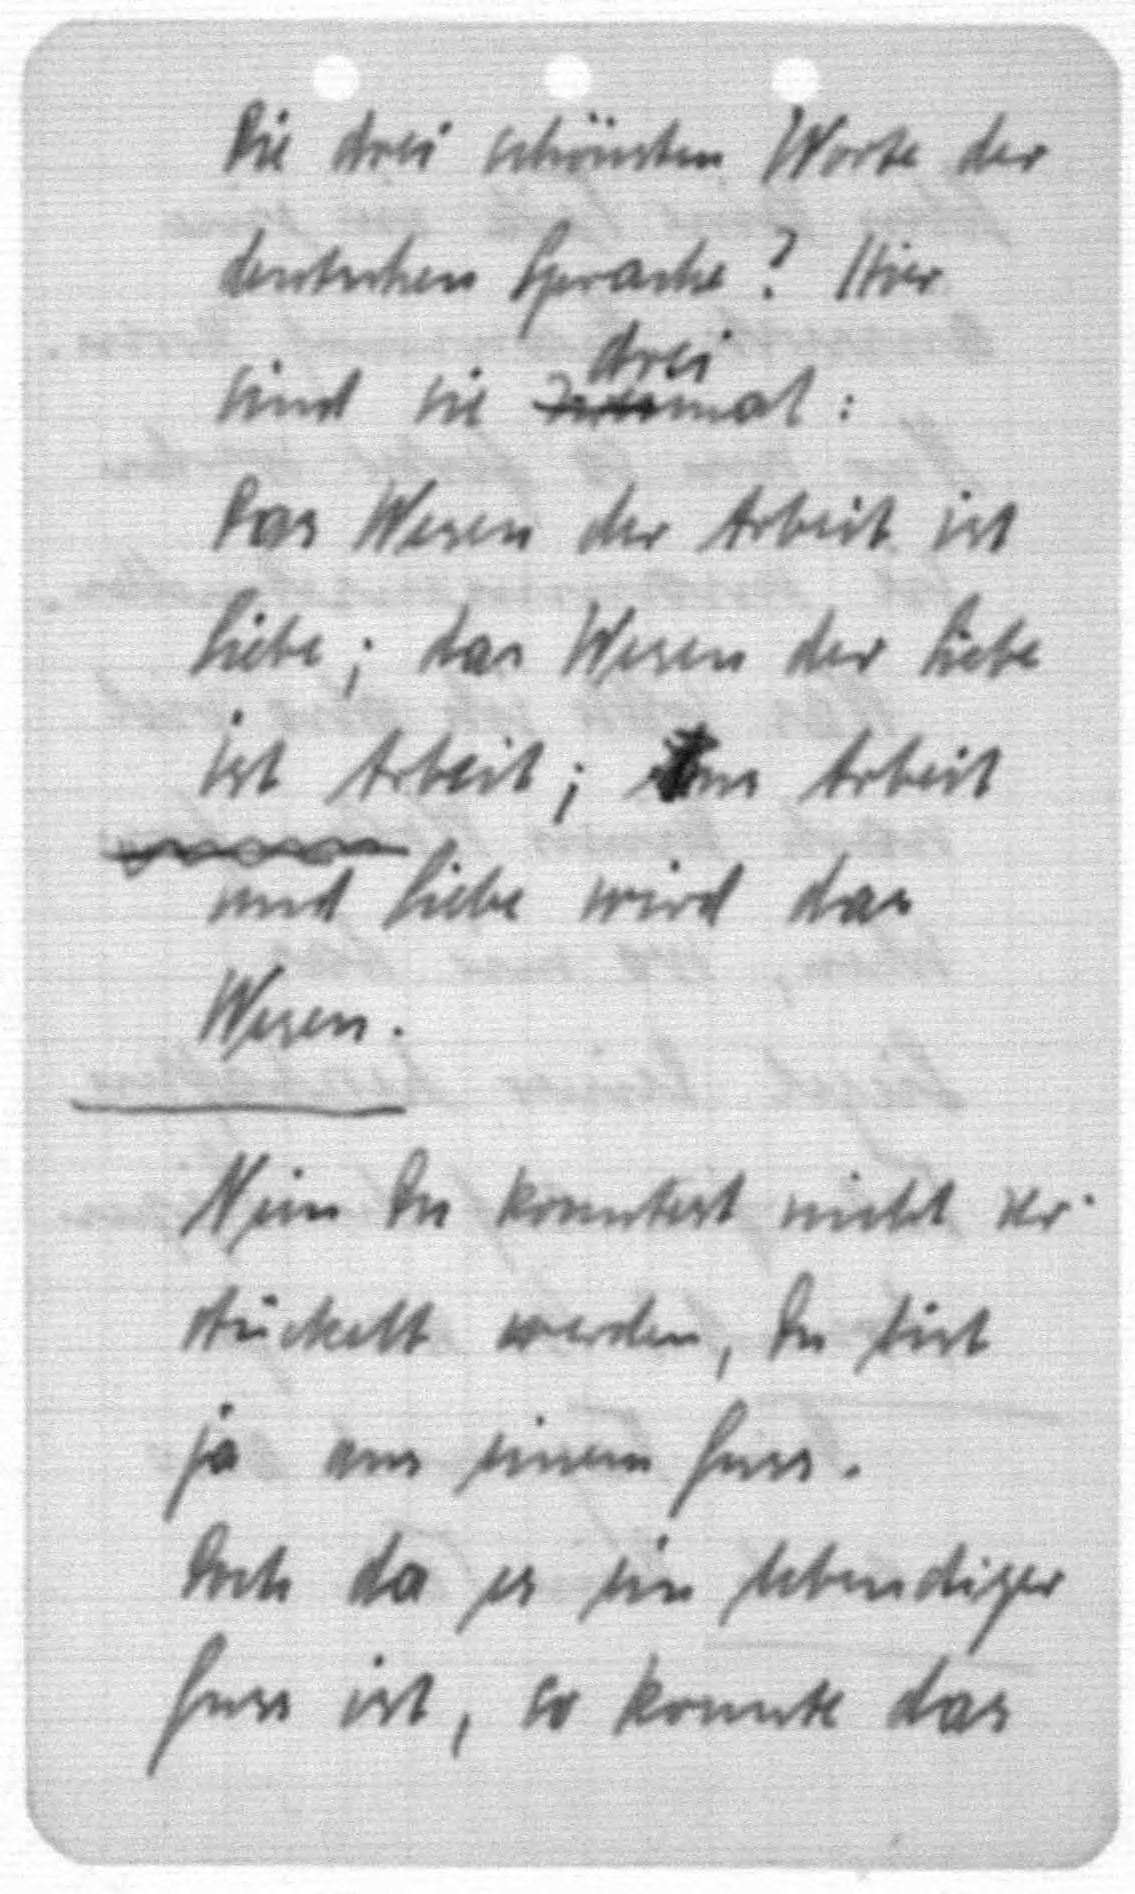 Die drei schönsten Worte der
deutschen Sprache? Hier
sind sie dreimal:
Das Wesen der Arbeit ist
Liebe; das Wesen der Liebe
ist Arbeit; aus Arbeit
und Liebe wird das
Wesen.
Nein Du konntest nicht zer-
stückelt werden, Du bist
ja aus einem Guss.
Doch da es ein lebendiger
Guss ist, so konnte das